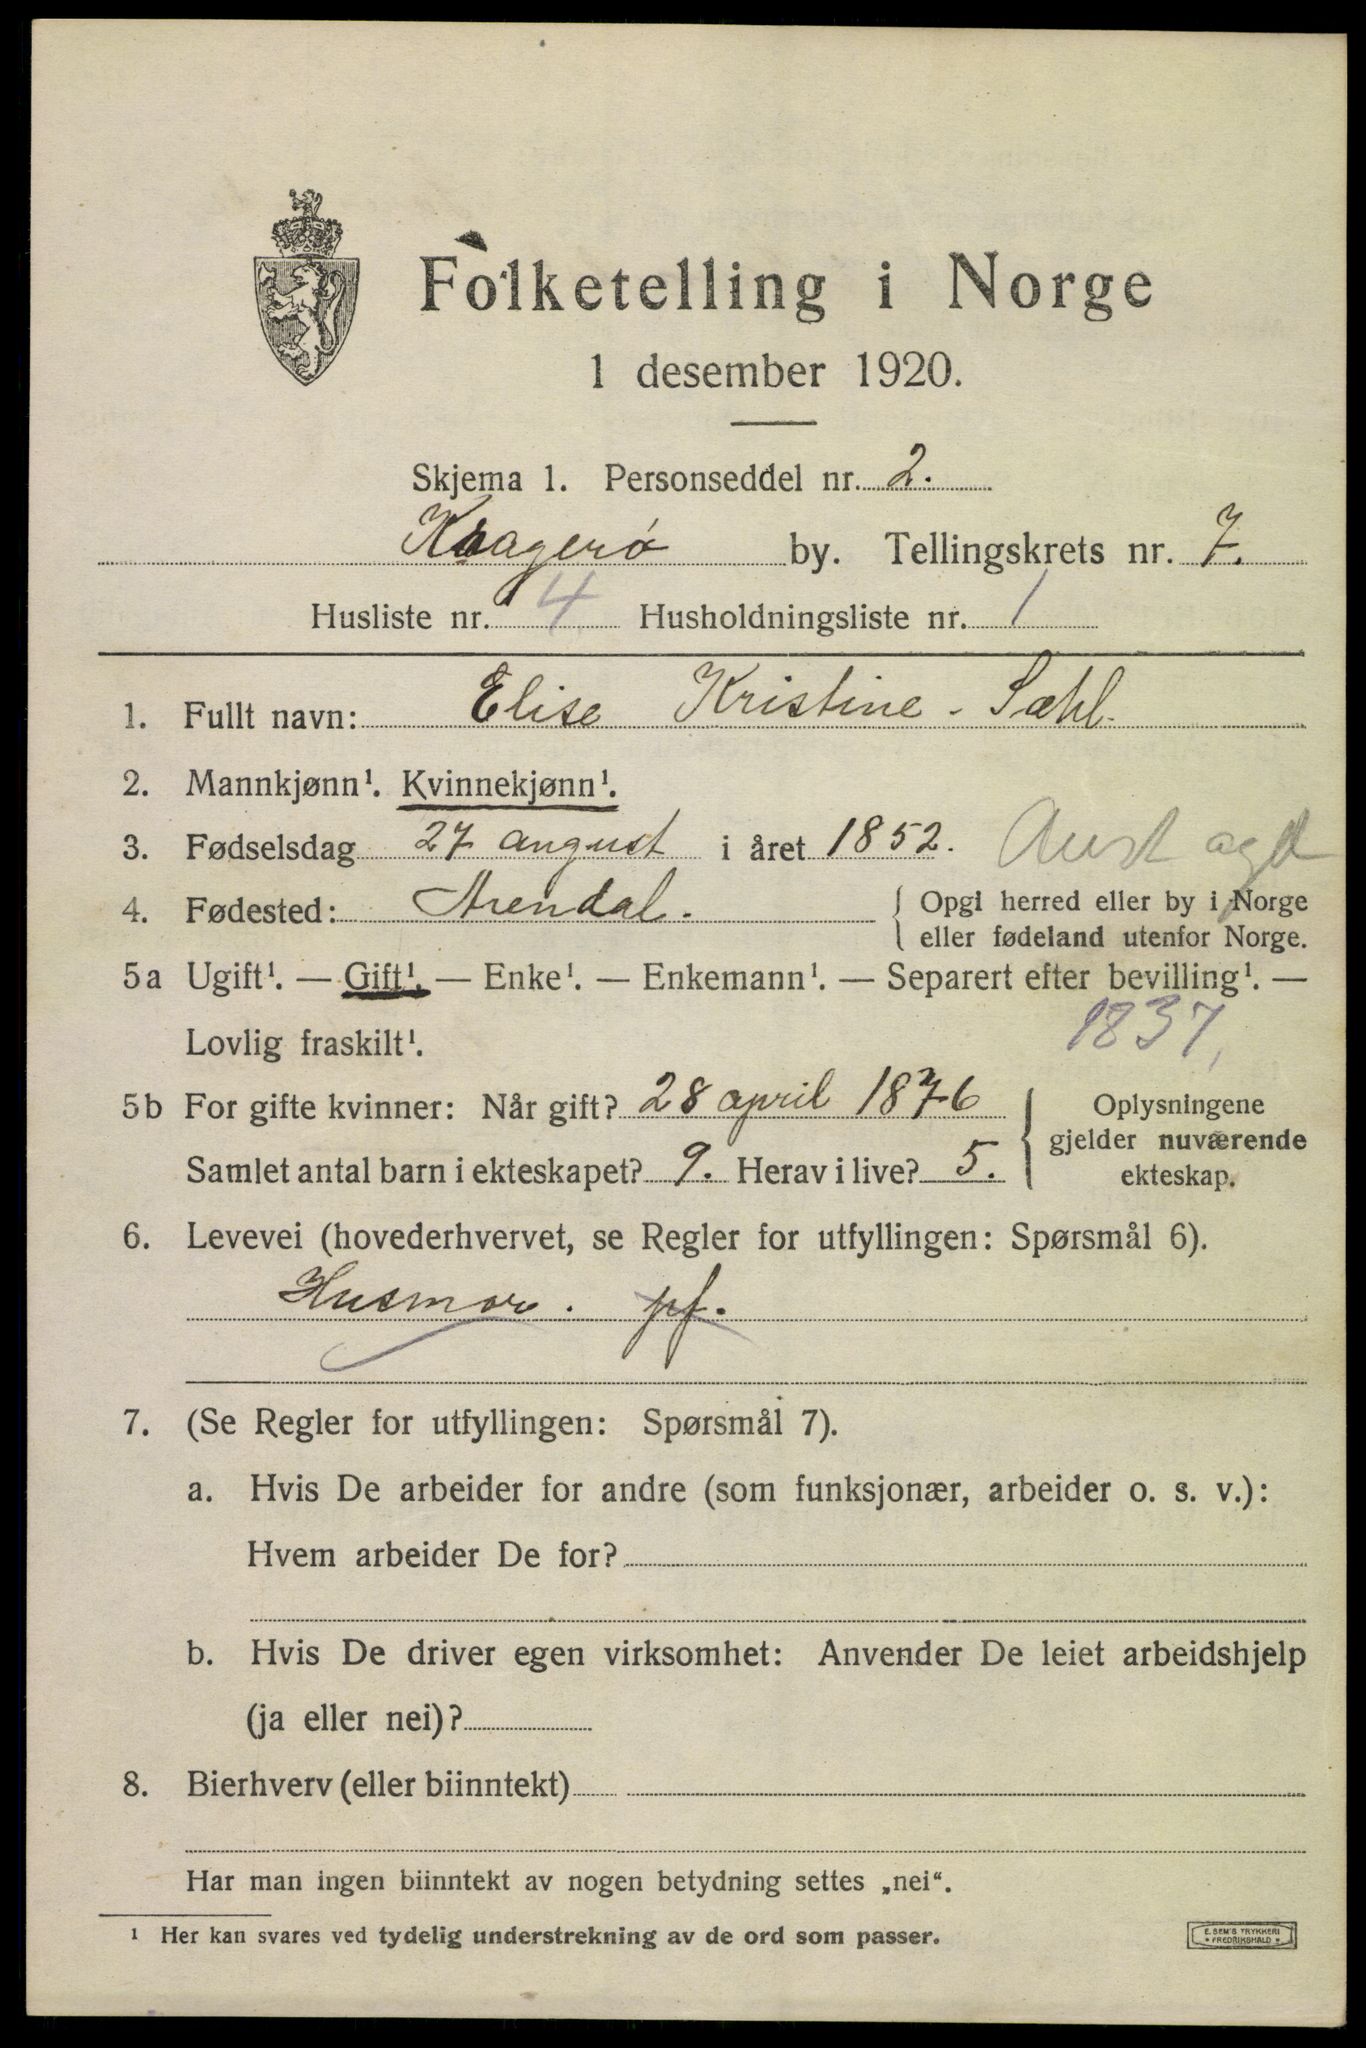 Folketelling i Norge
1 desember 1920.
Skjema 1. Personseddel nr. 2.
Kragerø by. Tellingskrets nr. 7.
Husliste nr. 4 Husholdningsliste nr. 1
1. Fullt navn: Elise Kristine Sæhl.
2. Mannkjønn¹. Kvinnekjønn¹.
3. Fødselsdag 27 august i året 1852. Aust agd
4. Fødested: Arendal. { Opgi herred eller by i Norge
eller fødeland utenfor Norge.
5a Ugift¹. — Gift¹. — Enke¹. — Enkemann¹. — Separert efter bevilling¹. —
Lovlig fraskilt¹. 1837,
5b For gifte kvinner: Når gift? 28 april 1876 { Oplysningene
gjelder nuværende
Samlet antal barn i ekteskapet? 9. Herav i live? 5. ekteskap.
6. Levevei (hovederhvervet, se Regler for utfyllingen: Spørsmål 6).
Husmor. pf.
7. (Se Regler for utfyllingen: Spørsmål 7).
a. Hvis De arbeider for andre (som funksjonær, arbeider o. s. v.):
Hvem arbeider De for?
b. Hvis De driver egen virksomhet: Anvender De leiet arbeidshjelp
(ja eller nei)?
8. Bierhverv (eller biinntekt)
Har man ingen biinntekt av nogen betydning settes „nei“.
¹ Her kan svares ved tydelig understrekning av de ord som passer.
E. SEM'S TRYKKERI
FREDRIKSHALD